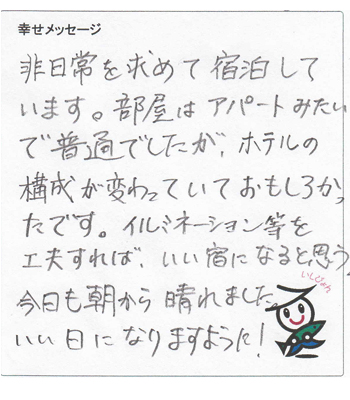 幸せメッセージ
非日常を求めて宿泊して
います。部屋はアパートみたい
で普通でしたが、ホテルの
構成が変わっていておもしろかっ
たです。イルミネーション等を
工夫すれば、いい宿になると思う。
いしぴょん
今日も朝から晴れました。
いい日になりますように!